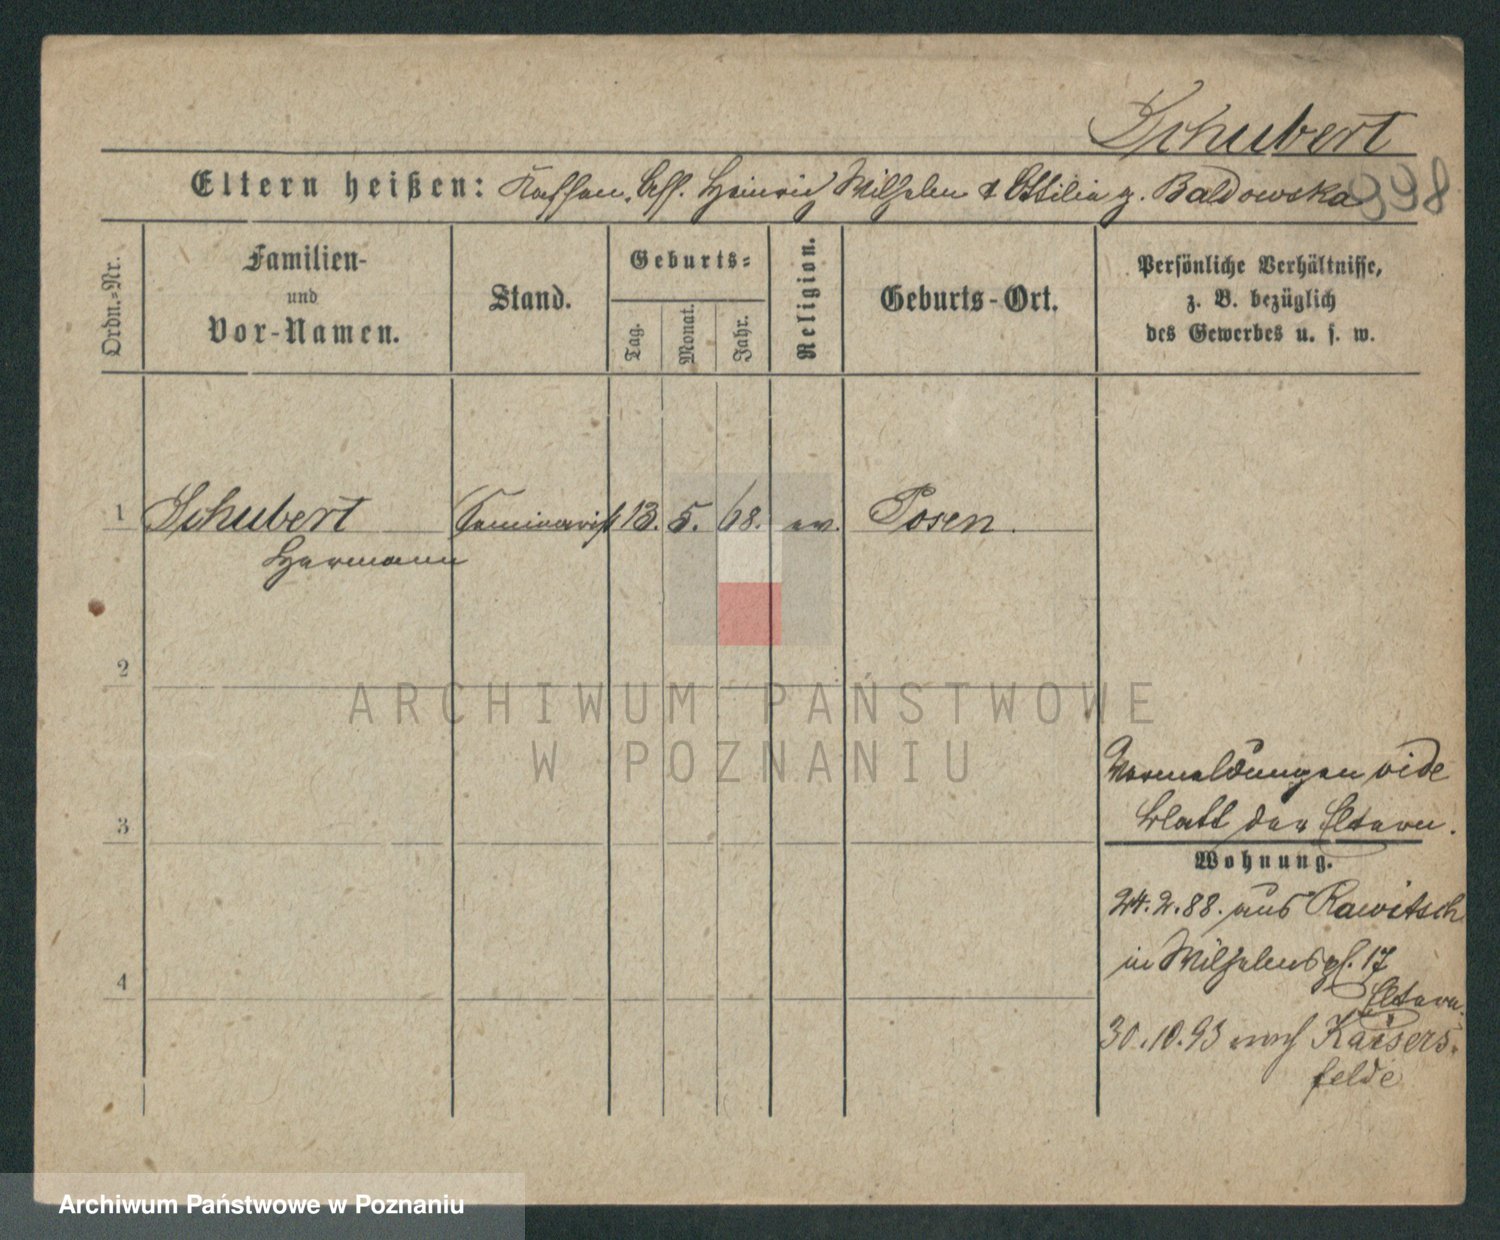 Schubert
Eltern heißen: Kassen. Ass. Heinrich Wilhelm & Ottilia g. Baldowska
998
Ordn.-Nr.
Familien-
und
Vor-Namen.
Stand.
Geburts-
Tag.
Monat.
Jahr.
Religion.
Geburts-Ort.
Persönliche Verhältnisse,
z. B. bezüglich
des Gewerbes u. s. w.
1 Schubert Seminarist 13. 5. 68. ev. Posen.
Hermann
2
ARCHIWUM PAŃSTWOWE
W POZNANIU
Vormeldungen vide
Blatt der Eltern.
3
Wohnung.
24.2.88. aus Rawitsch
in Wilhelmspl. 17
Eltern.
4
30.10.93 nach Kaisers-
felde
Archiwum Państwowe w Poznaniu